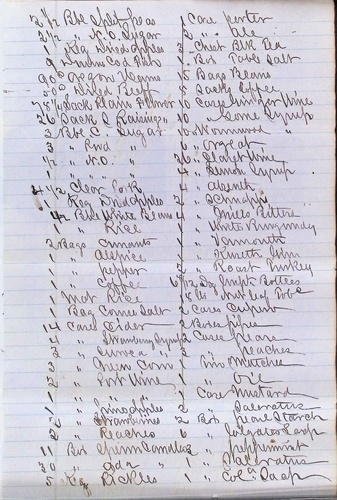 2 1/2 Bbl Split Peas
3 1/2 " N.O. Sugar
1 Keg Dried Apples
9 Drums Cod Fish
90# Oregon Hams
50# Dried Beef
Sack Plain Flour
26 Sack S Raisings
3 Bbl C. Sugar
3 " Rwd "
1/2 " N.O. "
1/2 Clear Pork
1 Keg Dried Apples
4/2 Bbl White Beans
1 " Rice
2 Bags Currants
1 " Alspice
1 " Pepper
1 " Coffee
1 Mat Rice
1 Bag Corse Salt
14 Cases Cider
4 " Strawberry Syrup
3 " Green Corn
2 " Port Wine
1 " Pineapples
2 " Strawberries
2 " Peaches
11 Box Sperm Candles
30 "
5 Keg Pickles
1 Case Porter
2 " Ale
3 Chest Blk Tea
1 Box Table Salt
15 Bags Beans
5 Sacks Coffee
10 Cases Ginger Wine
10 " Lemon Syrup
10 " Wormwood
6 " Orgeat
36 " Claret Wine
4 " Lemon Syrup
4 " Absenth
2 " Schnapps
4 " Bitters
1 " White Burgundy
1 " Vermouth
2 " Roast Turkey
6 1/2 Doz Empt Bottles
2 Cases
2 Boxes Pipes
2 Cases Pears
3 " Peaches
Two Matches
1 " Oil
2 Case Mustard
2 " Saleratus
2 Box Pearl Starch
6 " Colgates Soap
2 " Peppermint
1 " Saleratus
1 " Col Soap